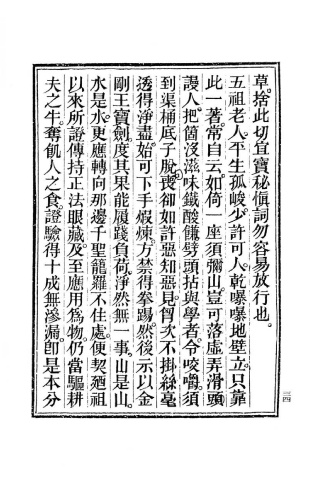 草捨此切宜寶秘愼詞勿容易放行也。
五祖老人平生孤峻少許可人乾曝曝地壁立只靠
此一著常自云如倚一座須彌山豈可落虛弄滑頭
謾人把箇沒滋味鐵酸饀劈頭拈與學者令咬嚼須
到渠桶底子脫喪却如許惡知惡見胷次不掛絲毫
透得淨盡始可下手煅煉方禁得拳踢然後示以金
剛王寶劍度其果能履踐負荷淨然無一事山是山
水是水更應轉向那邊千聖籠羅不住處便契廼祖
以來所證傳持正法眼藏及至應用爲物仍當驅耕
夫之牛奪飢人之食證驗得十成無滲漏卽是本分
三四